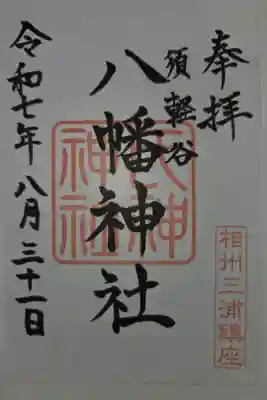 奉拝
須軽谷
八幡神社
令和七年八月三十一日
神社
相州三浦鎮座